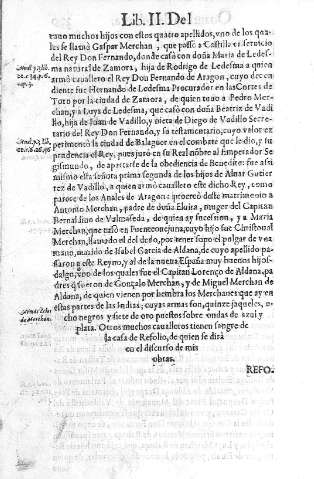 Lib. II. Del
tuuo muchos hijos con estos quatro apellidos, vno de los qua-
les se llamò Gaspar Merchan, que passò a Castilla en seruicio
del Rey Don Fernando, donde casò con doña Maria de Ledes-
ma natural de Zamora, hija de Rodrigo de Ledesma a quien
armò cauallero el Rey Don Fernando de Aragon, cuyo decen
diente fue Hernando de Ledesma Procurador en las Cortes de
Toro por la ciudad de Zamora, de quien tuuo a Pedro Mer-
chan, y a Luys de Ledesma, que casò con doña Beatriz de Vadi
llo, hija de Juan de Vadillo, y nieta de Diego de Vadillo Secre-
tario del Rey Don Fernando, y su testamentario, cuyo valor ex
perimentò la ciudad de Balaguer en el combate que le dio, y su
prudencia el Rey, pues jurò en su Real nõbre al Emperador Se
gismundo, de apartarse de la obediencia de Benedito: fue assi
mismo esta señora prima segunda de los hijos de Aluar Gutier
rez de Vadillo, a quien armò cauallero este dicho Rey, como
parece de los Anales de Aragon: procreò deste matrimonio a
Antonio Merchan, padre de doña Eluira, muger del Capitan
Bernaldino de Valmaseda, de quien ay sucession, y a Maria
Merchan, que casò en Fuenteouejuna, cuyo hijo fue Christoual
Merchan, llamado el del dedo, por tener supo el pulgar de vna
mano, marido de Isabel Garcia de Aldana, de cuyo apellido pa-
ssaron a este Reyno, y al de la nueua España muy buenos hijos-
dalgo, vno de los quales fue el Capitan Lorenço de Aldana, pa
dres q̃ fueron de Gonçalo Merchan, y de Miguel Merchan de
Aldana, de quien vienen por hembra los Merchanes que ay en
estas partes de las Indias, cuyas armas son, quinze jaqueles, o-
cho negros y siete de oro puestos sobre ondas de azul y
plata. Otros muchos caualleros tienen sangre de
la casa de Refolio, de quien se dirà
en el discurso de mis
obras.
REFO.